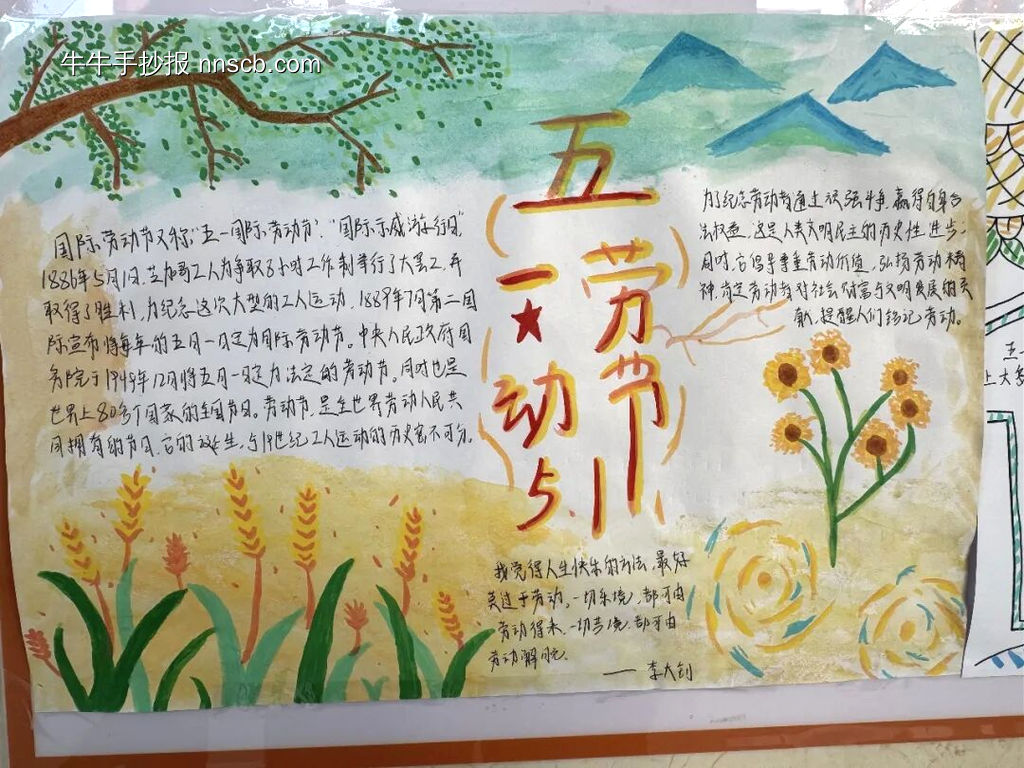 牛牛手抄报 nnscb.com
五一劳动节
5.1
国际劳动节又称"五一国际劳动节"、"国际示威游行日"
1886年5月1日,芝加哥工人为争取8小时工作制举行了大罢工,并
取得了胜利,为纪念这次大型的工人运动,1889年7月第二国
际宣布将每年的五月一日定为国际劳动节。中央人民政府国
务院于1949年12月将五月一日定为法定的劳动节。同时也是
世界上80多个国家的全国节日。劳动节,是全世界劳动人民共
同拥有的节日,它的诞生,与19世纪工人运动的历史密不可分。
为了纪念劳动者通过顽强斗争,赢得自身合
法权益,这是人类文明民主的历史性进步,
同时,它倡导尊重劳动价值,弘扬劳动精
神,肯定劳动者对社会财富与文明发展的贡
献,提醒人们铭记劳动。
我觉得人生快乐的方法,最好
莫过于劳动。一切乐境,都可由
劳动得来,一切苦境,都可由
劳动解脱。
——李大钊
五一
上大多